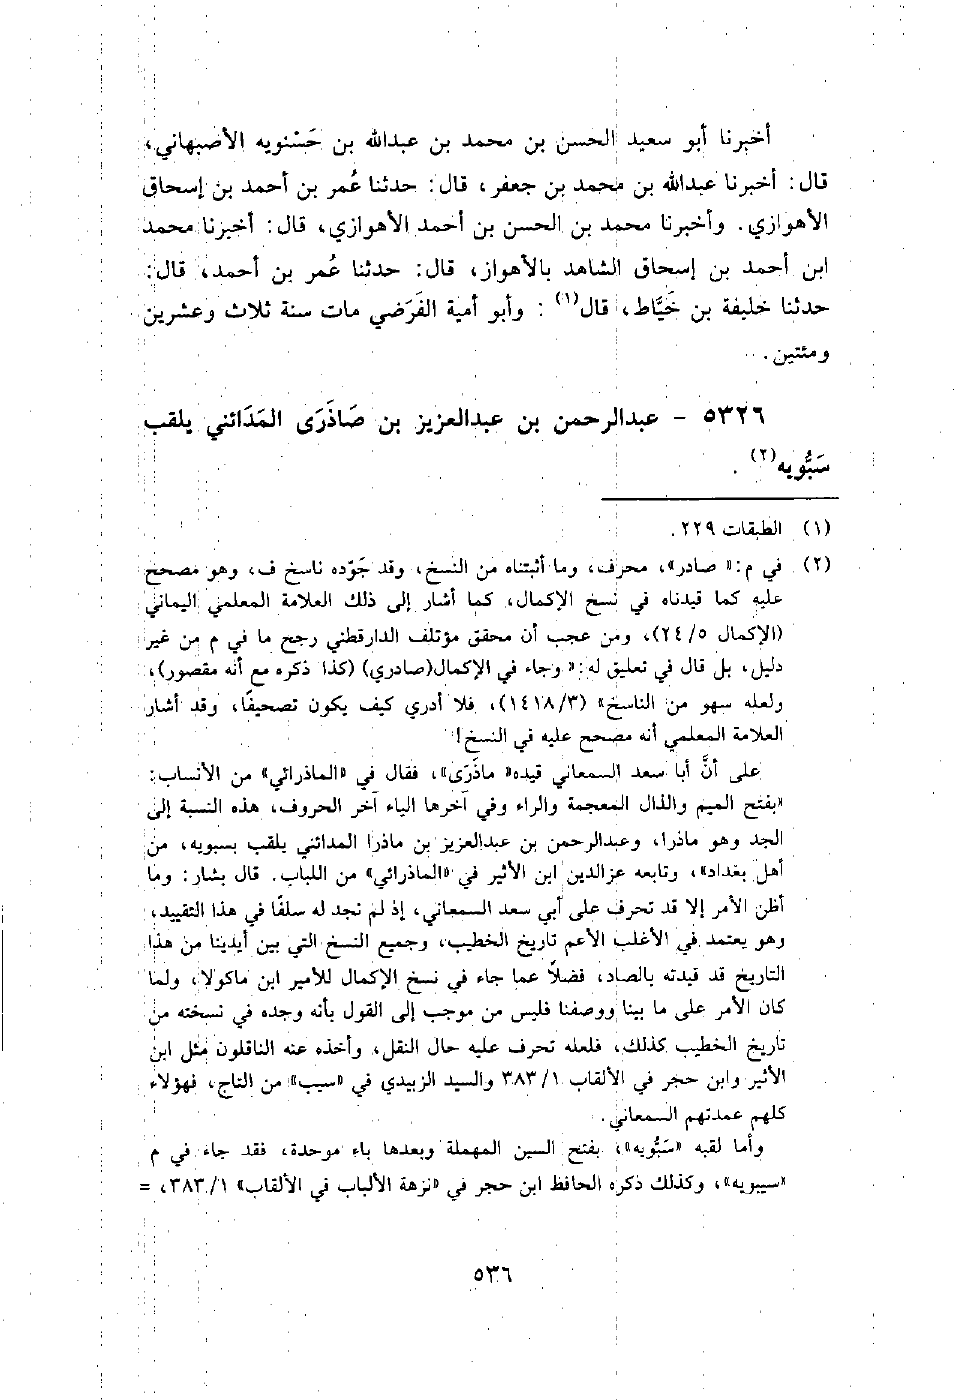 أخبرنا أبو سعيد الحسن بن محمد بن عبدالله بن حَسْنويه الأصبهاني،
قال: أخبرنا عبدالله بن محمد بن جعفر، قال: حدثنا عُمر بن أحمد بن إسحاق
الأهوازي. وأخبرنا محمد بن الحسن بن أحمد الأهوازي، قال: أخبرنا محمد
ابن أحمد بن إسحاق الشاهد بالأهواز، قال: حدثنا عُمر بن أحمد، قال:
حدثنا خليفة بن خَيَّاط، قال(١): وأبو أمية الفَرَضي مات سنة ثلاث وعشرين
ومئتين.
٥٣٢٦ - عبدالرحمن بن عبدالعزيز بن صَاذَرَى المَدَائني يلقب
سَبُّويه(٢).
(١) الطبقات ٢٢٩.
(٢) في م: «صادر»، محرف، وما أثبتناه من النسخ، وقد جَوّده ناسخ ف، وهو مصحح
عليه كما قيدناه في نسخ الإكمال، كما أشار إلى ذلك العلامة المعلمي اليماني
(الإكمال ٥/ ٢٤)، ومن عجب أن محقق مؤتلف الدارقطني رجح ما في م من غير
دليل، بل قال في تعليق له: «وجاء في الإكمال(صادري) (كذا ذكره مع أنه مقصور)،
ولعله سهو من الناسخ» (٣/ ١٤١٨)، فلا أدري كيف يكون تصحيفًا، وقد أشار
العلامة المعلمي أنه مصحح عليه في النسخ!
على أنَّ أبا سعد السمعاني قيده «ماذَرَى»، فقال في «الماذرائي» من الأنساب:
«بفتح الميم والذال المعجمة والراء وفي آخرها الياء آخر الحروف، هذه النسبة إلى
الجد وهو ماذرا، وعبدالرحمن بن عبدالعزيز بن ماذرا المدائني يلقب بسبويه، من
أهل بغداد»، وتابعه عزالدين ابن الأثير في «الماذرائي» من اللباب. قال بشار: وما
أظن الأمر إلا قد تحرف على أبي سعد السمعاني، إذ لم نجد له سلفًا في هذا التقييد،
وهو يعتمد في الأغلب الأعم تاريخ الخطيب، وجميع النسخ التي بين أيدينا من هذا
التاريخ قد قيدته بالصاد، فضلًا عما جاء في نسخ الإكمال للأمير ابن ماكولا، ولما
كان الأمر على ما بينا ووصفنا فليس من موجب إلى القول بأنه وجده في نسخته من
تاريخ الخطيب كذلك، فلعله تحرف عليه حال النقل، وأخذه عنه الناقلون مثل ابن
الأثير وابن حجر في الألقاب ١/ ٣٨٣ والسيد الزبيدي في «سيب» من التاج، فهؤلاء
كلهم عمدتهم السمعاني.
وأما لقبه «سَبُّويه»، بفتح السين المهملة وبعدها باء موحدة، فقد جاء في م
«سيبويه»، وكذلك ذكره الحافظ ابن حجر في «نزهة الألباب في الألقاب» ١/ ٣٨٣، =
٥٣٦